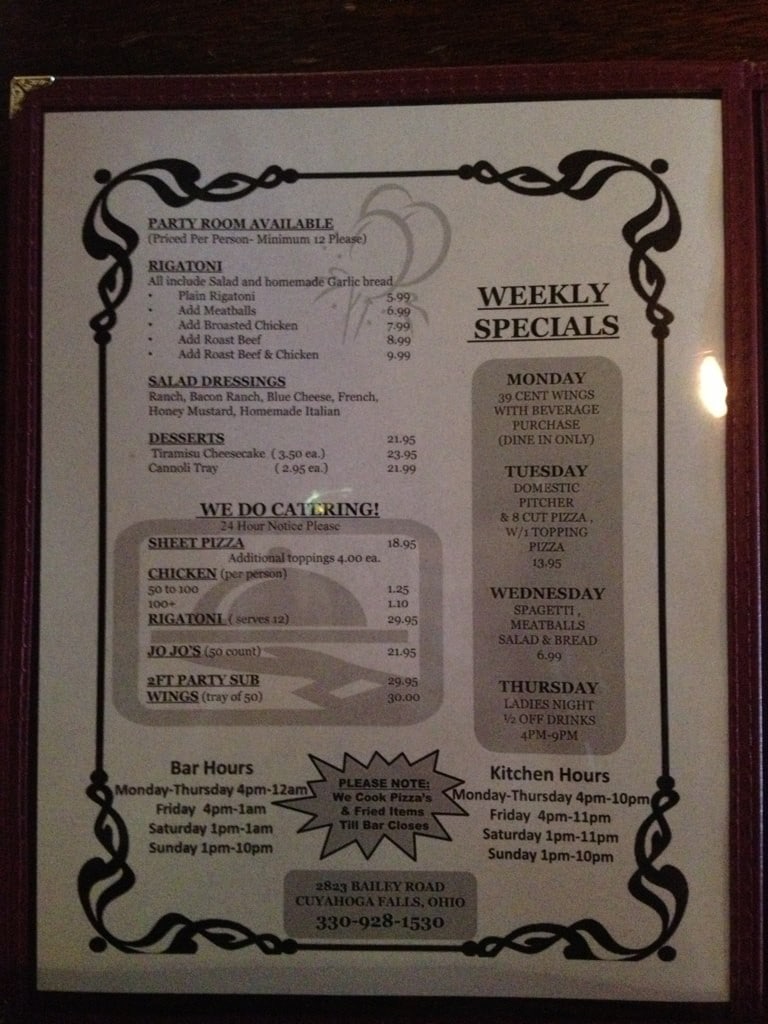 PARTY ROOM AVAILABLE
(Priced Per Person- Minimum 12 Please)
RIGATONI
All include Salad and homemade Garlic bread
• Plain Rigatoni 5.99
• Add Meatballs 6.99
• Add Broasted Chicken 7.99
• Add Roast Beef 8.99
• Add Roast Beef & Chicken 9.99
SALAD DRESSINGS
Ranch, Bacon Ranch, Blue Cheese, French,
Honey Mustard, Homemade Italian
DESSERTS 21.95
Tiramisu Cheesecake ( 3.50 ea.) 23.95
Cannoli Tray ( 2.95 ea.) 21.99
WE DO CATERING!
24 Hour Notice Please
SHEET PIZZA 18.95
Additional toppings 4.00 ea.
CHICKEN (per person)
50 to 100 1.25
100+ 1.10
RIGATONI ( serves 12) 29.95
JO JO'S (50 count) 21.95
2FT PARTY SUB 29.95
WINGS (tray of 50) 30.00
WEEKLY
SPECIALS
MONDAY
39 CENT WINGS
WITH BEVERAGE
PURCHASE
(DINE IN ONLY)
TUESDAY
DOMESTIC
PITCHER
& 8 CUT PIZZA ,
W/1 TOPPING
PIZZA
13.95
WEDNESDAY
SPAGETTI ,
MEATBALLS
SALAD & BREAD
6.99
THURSDAY
LADIES NIGHT
½ OFF DRINKS
4PM-9PM
Bar Hours
Monday-Thursday 4pm-12am
Friday 4pm-1am
Saturday 1pm-1am
Sunday 1pm-10pm
PLEASE NOTE:
We Cook Pizza's
& Fried Items
Till Bar Closes
Kitchen Hours
Monday-Thursday 4pm-10pm
Friday 4pm-11pm
Saturday 1pm-11pm
Sunday 1pm-10pm
2823 BAILEY ROAD
CUYAHOGA FALLS, OHIO
330-928-1530